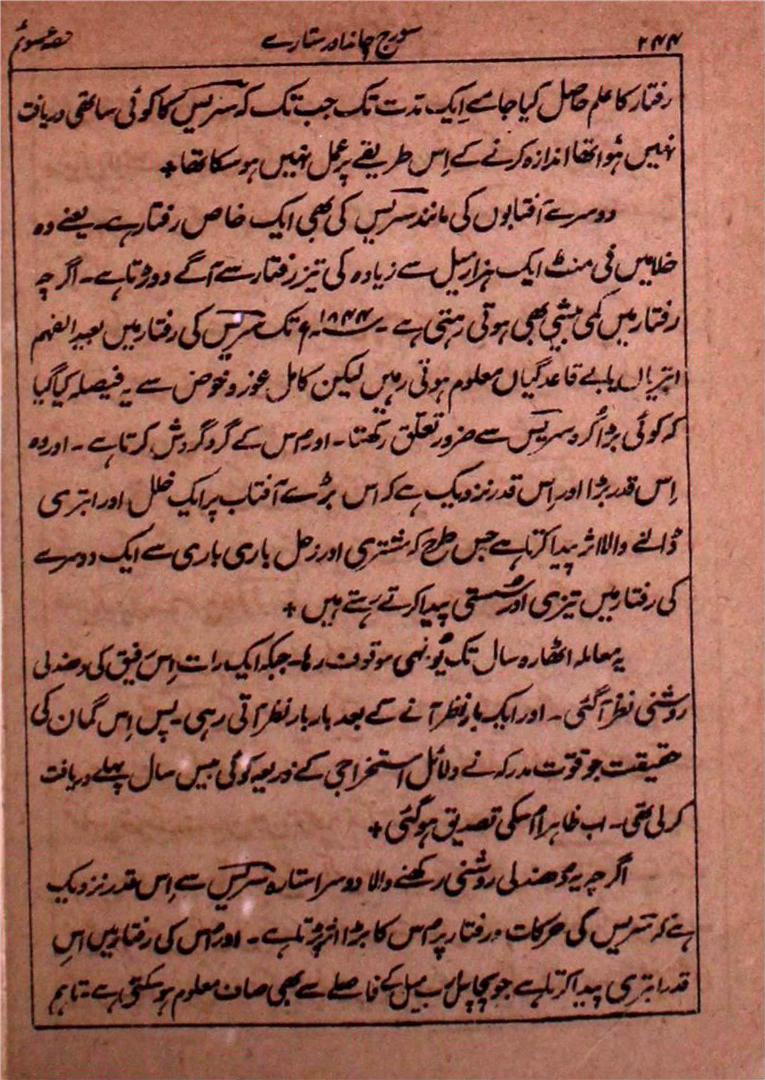 ۲۴۴ سورج چاند اور ستارے حصہ سوئم
رفتار کا علم حاصل کیا جائے ایک مدت تک جب تک کہ سریس کا کوئی ساتھی دریافت
نہیں ہُوا تھا اندازہ کرنے کے اِس طریقے پر عمل نہیں ہو سکتا تھا +
دوسرے آفتابوں کی مانند سریس کی بھی ایک خاص رفتار ہے۔ یعنے وہ
خلا میں فی منٹ ایک ہزار میل سے زیادہ کی تیز رفتار سے آگے دوڑتا ہے۔ اگرچہ
رفتار میں کمی بیشی بھی ہوتی رہتی ہے۔ ۱۸۴۴ء تک سریس کی رفتار میں بعید الفہم
ابتریاں یا بے قاعدگیاں معلوم ہوتی رہیں لیکن کامل غور و خوض سے یہ فیصلہ کیا گیا
کہ کوئی بڑا کُرہ سریس سے ضرور تعلّق رکھتا۔ اور اُس کے گرد گردش کرتا ہے۔ اور وہ
اِس قدر بڑا اور اِس قدر نزدیک ہے کہ اس بڑے آفتاب پر ایک خلل اور ابتری
ڈالنے والا اثر پیدا کرتا ہے جس طرح کہ مشتری اور زحل باری باری سے ایک دوسرے
کی رفتار میں تیزی اور سُستی پیدا کرتے رہتے ہیں +
یہ معاملہ اٹھارہ سال تک یُونہی موقوف رہا۔ جبکہ ایک رات اِس رفیق کی دھندلی
روشنی نظر آگئی۔ اور ایک بار نظر آنے کے بعد بار بار نظر آتی رہی۔ پس اِس گمان کی
حقیقت جو قوّت مدرکہ نے دلائل استخراجی کے ذریعہ کوئی بیس سال پہلے دریافت
کرلی تھی۔ اب ظاہرا اُسکی تصدیق ہوگئی +
اگرچہ یہ دُھندلی روشنی رکھنے والا دوسرا ستارہ سریس سے اِس قدر نزدیک
ہے کہ سریس کی حرکات و رفتار پر اُس کا بڑا اثر پڑتا ہے۔ اور اُس کی رفتار میں اس
قدر ابتری پیدا کرتا ہے جو پچاس پدم میل کے فاصلے سے بھی صاف معلوم ہو سکتی ہے۔ تاہم